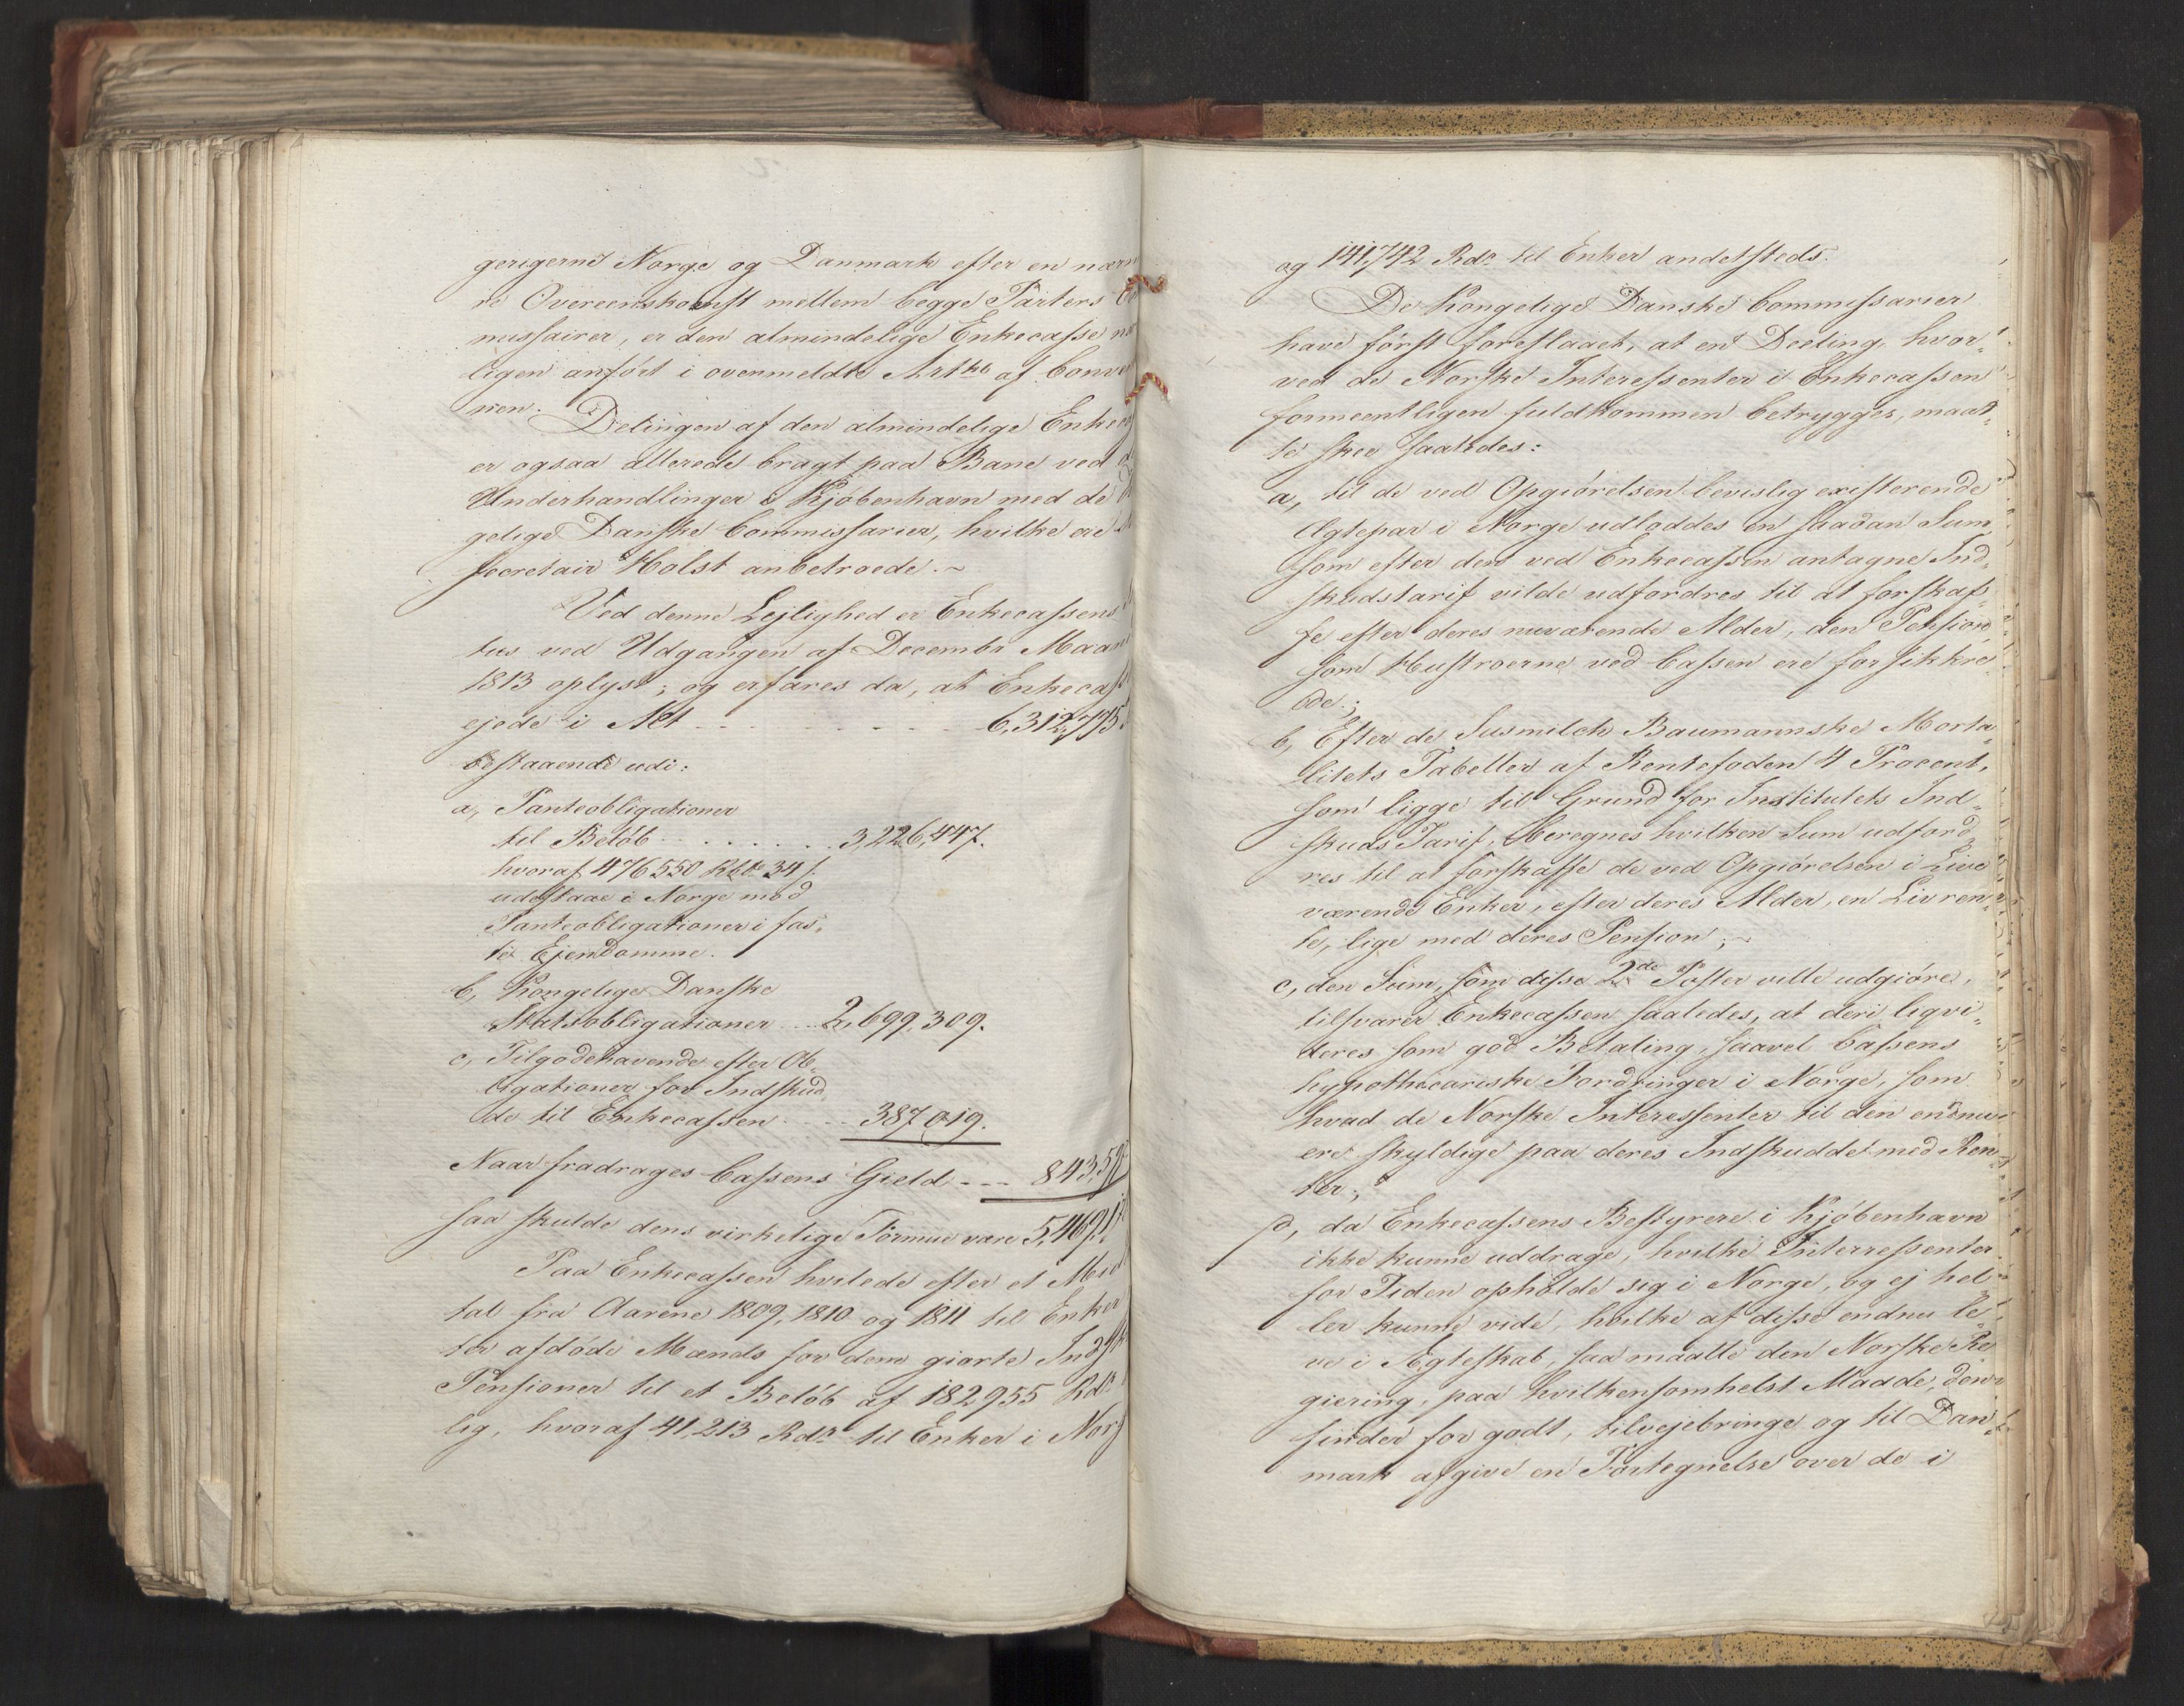 gerigerne Norge og Danmark efter en nærm
re Overeenskomst mellem begge Parters Co
missairer, er den almindelige Enkecasse næ
ligen anført i overmeldte Art af Conve
nen.
Delingen af den almindelige Enkec
er ogsaa allerede bragt paa Bane ved
Underhandlinger i Kjøbenhavn med de
gelige Danske Commissarier, hvilke ere
secretair Holst anbetroede. ~
Ved denne Lejlighed er Enkecassens
tus ved Udgangen af Decembr Maan
1813 oplyst; og erfares da, at Enkecass
ejede i Alt - - - - - - - - 6,312,775.
bestaaende udi:
a, Panteobligationer
til Beløb . . . . . . . . 3,226,447.
hvoraf 476550 Rbdr 34 s.
udestaae i Norge mod
Panteobligationer i fas„
te Ejendomme.
b, Kongelige Danske
Statsobligationer . . . 2,699,309.
c, Tilgodehavende efter Ob„
ligationer for Indskud„
de til Enkecassen . . . . 387,019.
Naar fradrages Cassens Gield - - - 843,5
saa skulde dens virkelige Formue være 5,469,1
Paa Enkecassen hvilede efter et Mid
tal fra Aarene 1809, 1810 og 1811 til Enker
ter afdøde Mænds for dem giorte Indsk
Pensioner til et Beløb af 182955 Rdr
lig, hvoraf 41,213 Rdr til Enker i Norg
og 141,742 Rdr til Enker andetsteds.
De Kongelige Danske Commissarier
have først foreslaaet, at en Deeling, hvor„
ved de Norske Interessenter i Enkecassen
formeentligen fuldkommen betrygges, maat„
te skee saaledes:
a, til de ved Opgiørelsen beviislig existerende
Ægtepar i Norge udloddes en saadan Sum
som efter den ved Enkecassen antagne Ind„
skudstarif vilde udfordres til at forskaf„
fe efter deres nuværende Alder, den Pension,
som Hustroerne ved Cassen ere forsikkre„
de.;
b, Efter de Susmilch Baumannske Morta„
litets Tabeller af Rentefoden 4 Procent,
som ligge til Grund for Institutets Ind„
skuds Tarif, beregnes hvilken Sum udford„
res til at forskaffe de ved Opgiørelsen i Live
værende Enker, efter deres Alder, en Livren„
te, lige med deres Pension; ~
c, den Sum, som disse 2de Poster ville udgiøre,
tilsvarer Enkecassen saaledes, at deri liqvi„
deres som god Betaling, saavel Cassens
hypothecariske Fordringer i Norge, som
hvad de Norske Interessenter til den endnu
ere skyldige paa deres Indskuddet med Ren„
ter.;
d, da Enkecassens Bestyrere i Kjøbenhavn
ikke kunne uddrage, hvilke Interressenter
for Tiden opholde sig i Norge, og ej hel„
ler kunne vide, hvilke af disse endnu le„
ve i Ægteskab, saa maatte den Norske Re„
giering, paa hvilkensomhelst Maade, den
finder for godt, tilvejebringe og til Dan„
mark afgive en Fortegnelse over de i